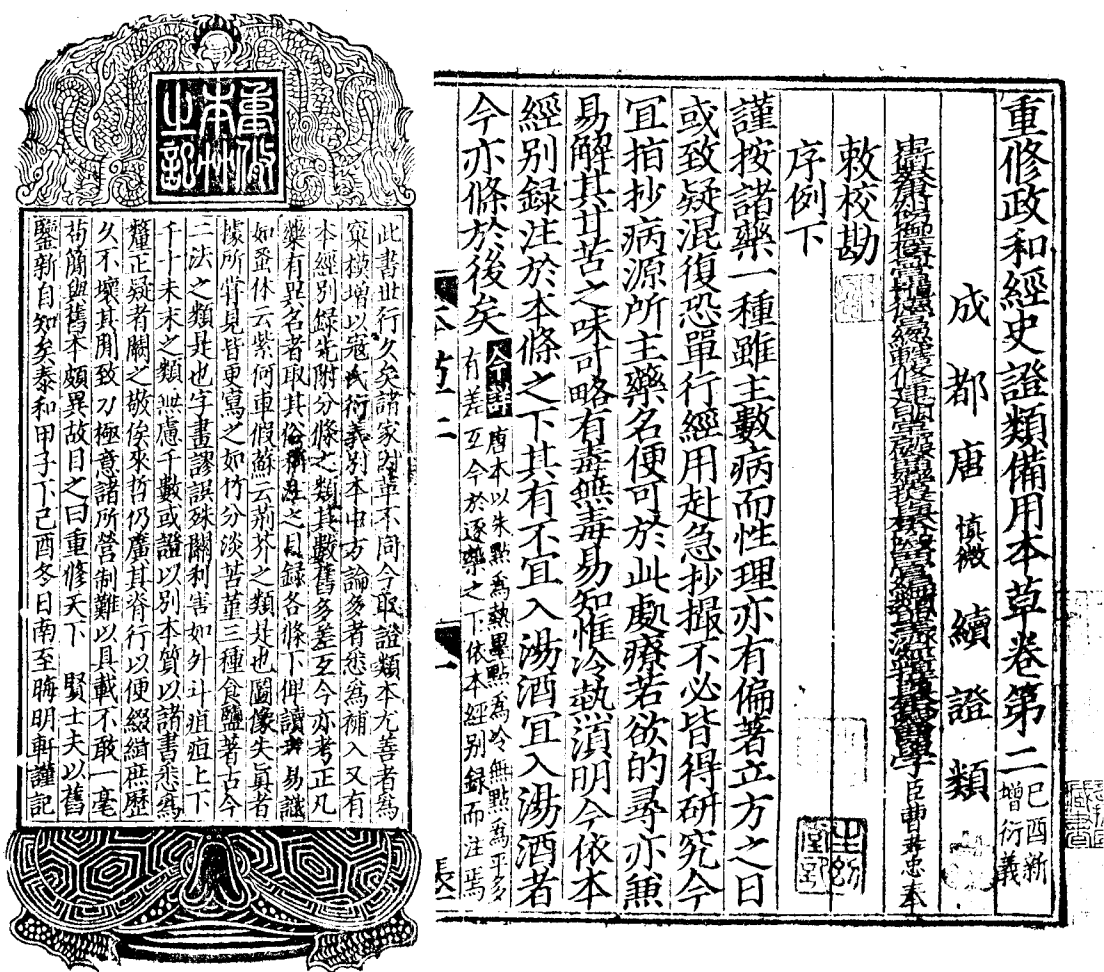 重修政和經史證類備用本草卷第二 己酉新
增衍義
成都唐慎微續證類
學臣曹孝忠奉
敕校勘
序例下
謹按諸藥一種雖主數病而性理亦有偏著立方之日
或致疑混復恐單行經用赴急抄撮不必皆得研究今
宜指抄病源所主藥名便可於此處療若欲的尋亦兼
易解其甘苦之味可略有毒無毒易知惟冷熱須明今依本
經別録注於本條之下其有不宜入湯酒宜入湯酒者
今亦條於後矣 今詳 唐本以朱點為熱墨點為冷無點為平多
有差互今於逐藥之下依本經別録而注焉
本草二
重脩
本艸
之記
此書世行久矣諸家因革不同今取證類本尤善者為
窠模增以寇氏衍義別本中方論多者悉為補入又有
本經別録先附分條之類其數舊多差互今亦考正凡
藥有異名者取其俗稱注之目録各條下俾讀者易識
如蚤休云紫何車假蘇云荊芥之類是也圖像失真者
據所嘗見皆更寫之如竹分淡苦堇三種食鹽著古今
二法之類是也字畫謬誤殊關利害如升斗疽疸上下
千十未末之類無慮千數或證以別本質以諸書悉為
釐正疑者闕之敬俟來哲仍廣其脊行以便綴緝庶歷
久不壞其間致力極意諸所營制難以具載不敢一毫
苟簡與舊本頗異故目之曰重修天下 賢士夫以舊
鑒新自知矣泰和甲子下己酉冬日南至晦明軒謹記